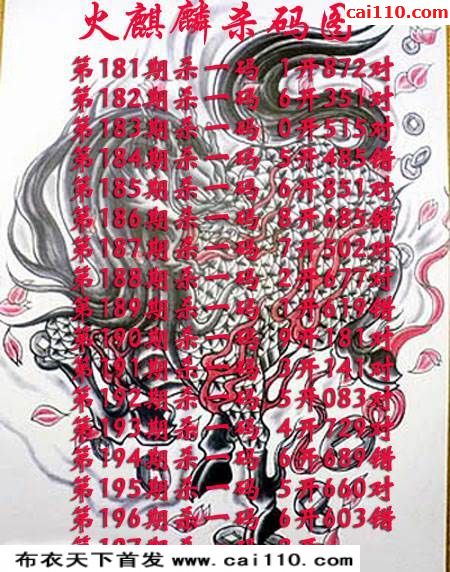 cai110.com
火麒麟杀码图
第181期杀一码 1开872对
第182期杀一码 6开351对
第183期杀一码 0开515对
第184期杀一码 5开485错
第185期杀一码 6开851对
第186期杀一码 8开685错
第187期杀一码 7开502对
第188期杀一码 2开677对
第189期杀一码 1开619错
第190期杀一码 9开181对
第191期杀一码 3开141对
第192期杀一码 5开083对
第193期杀一码 4开729对
第194期杀一码 6开689错
第195期杀一码 5开660对
第196期杀一码 6开603错
布衣天下首发 www.cai110.com